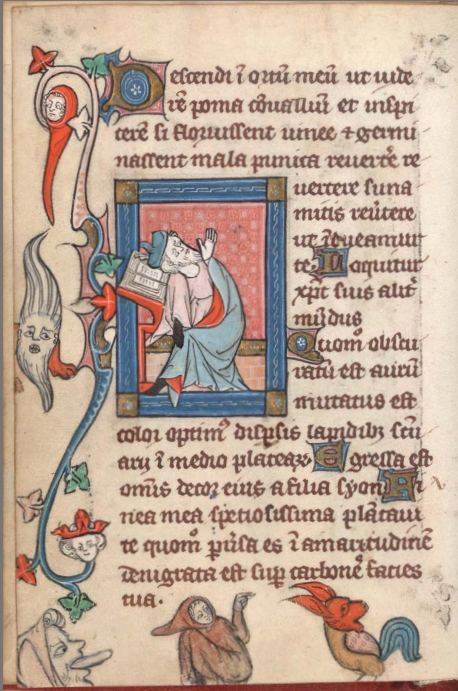 Descendi ī ortū meū ut uide
rē poma cōualliū et inspi
cerē si floruissent uinee ⁊ germi
nassent mala punica reuertē re
uertere suna
mitis reūtere
ut ītueamur
te. Loquitur
xp̄c suis alit̄
mūdus
Quom̄ obscu
ratū est aurū
mutatus est
color optim⁹ disp̄sis lapidibz scū
arij ī medio plateaꝝ Egressa est
om̄is decor eius a filia syon Vi
nea mea spetiosissima plātaui
te quom̄ es ī amaritudinē
denigrata est sup̄ carbonē facies
tua.